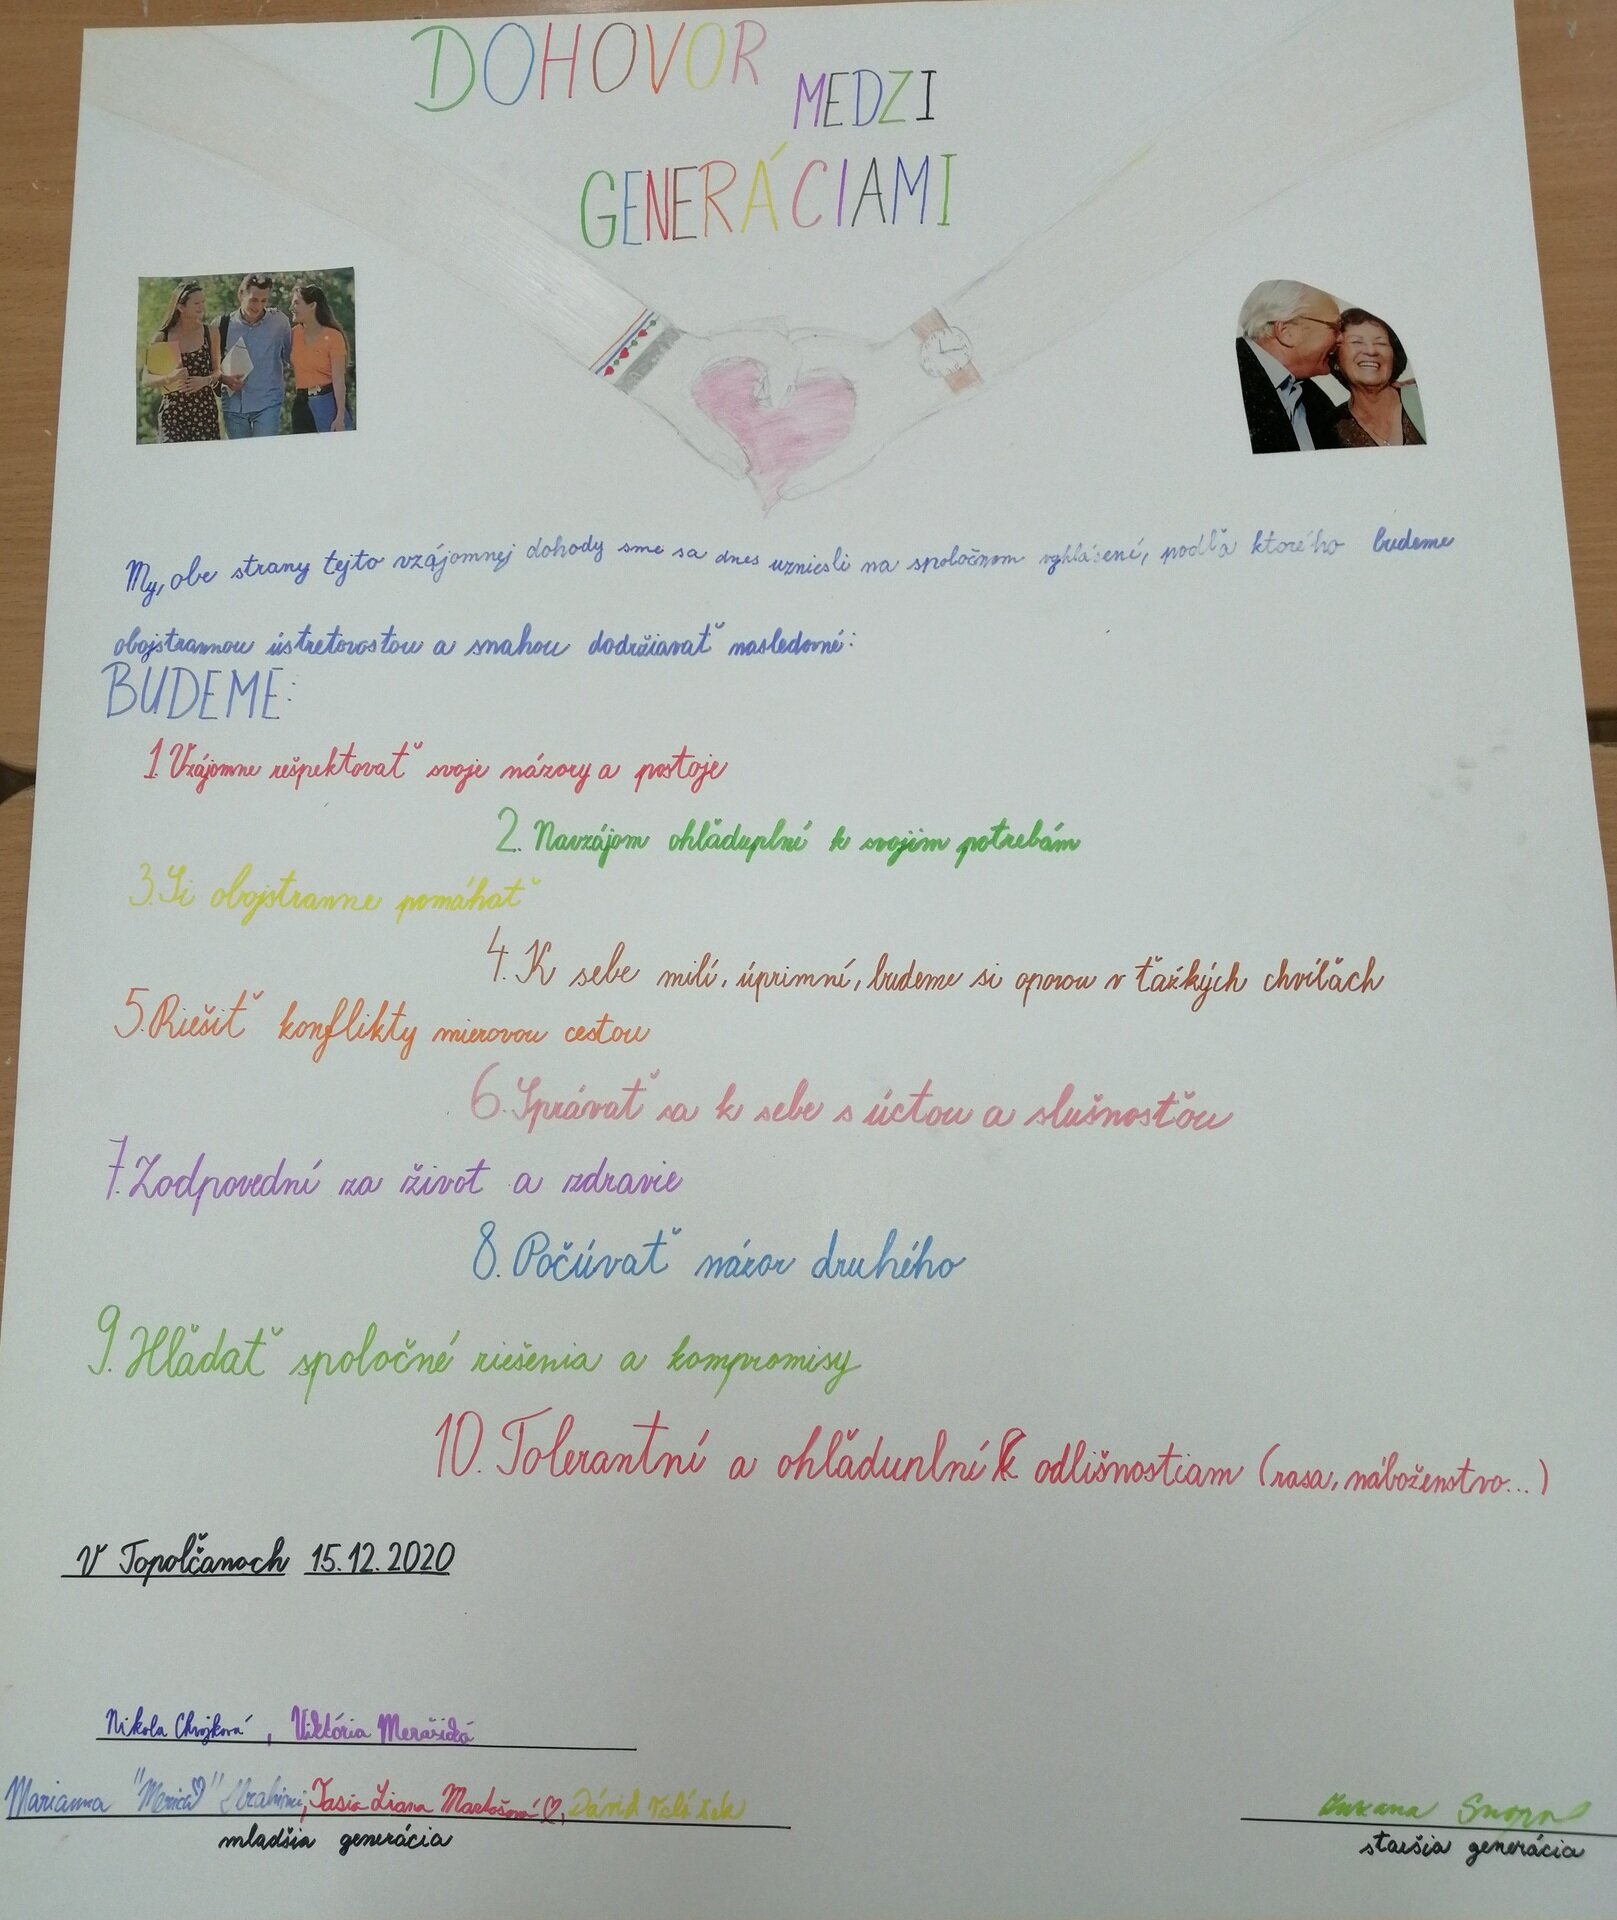 DOHOVOR
MEDZI
GENERÁCIAMI
My, obe strany tejto vzájomnej dohody sme sa dnes uzniesli na spoločnom vyhlásení, podľa ktorého budeme
obojstrannou ústretovosťou a snahou dodržiavať nasledovné:
BUDEME:
1. Vzájomne rešpektovať svoje názory a postoje
2. Navzájom ohľaduplní k svojim potrebám
3. Si obojstranne pomáhať
4. K sebe milí, úprimní, budeme si oporou v ťažkých chvíľách
5. Riešiť konflikty mierovou cestou
6. Správať sa k sebe s úctou a slušnosťou
7. Zodpovední za život a zdravie
8. Počúvať názor druhého
9. Hľadať spoločné riešenia a kompromisy
10. Tolerantní a ohľaduplní k odlišnostiam (rasa, náboženstvo...)
V Topoľčanoch 15.12.2020
Nikola Chvojková, Viktória
Marianna Ibrahimi, Tasia Liana Martošová ♡, Dávid
mladšia generácia
staršia generácia